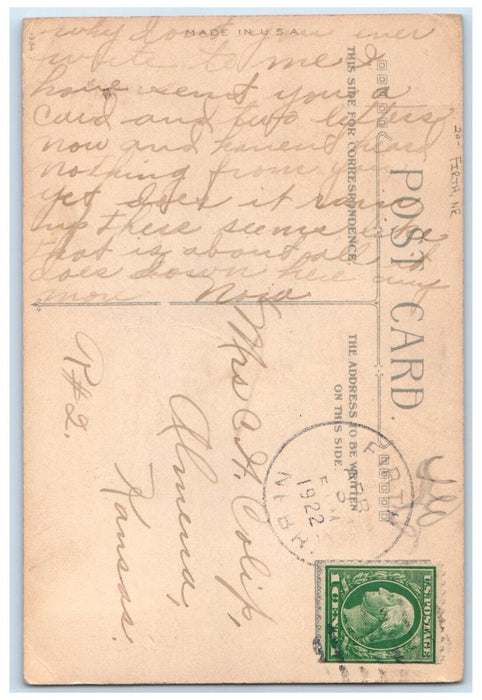 1304
MADE IN U.S.A.
why dont you ever
write to me I
have sent you a
card and two letters
now and havent heard
nothing from you
yet does it rain
up there seems like
that is about all it
does down here any
more Nora
THIS SIDE FOR CORRESPONDENCE.
POST CARD.
THE ADDRESS TO BE WRITTEN
ON THIS SIDE.
20- FIRTH, NE
Mrs C.H. Colip,
Almena,
Kansas.
R#2.
FIRTH
FEB
3
1922
NEBR.
U.S. POSTAGE
1 CENT 1